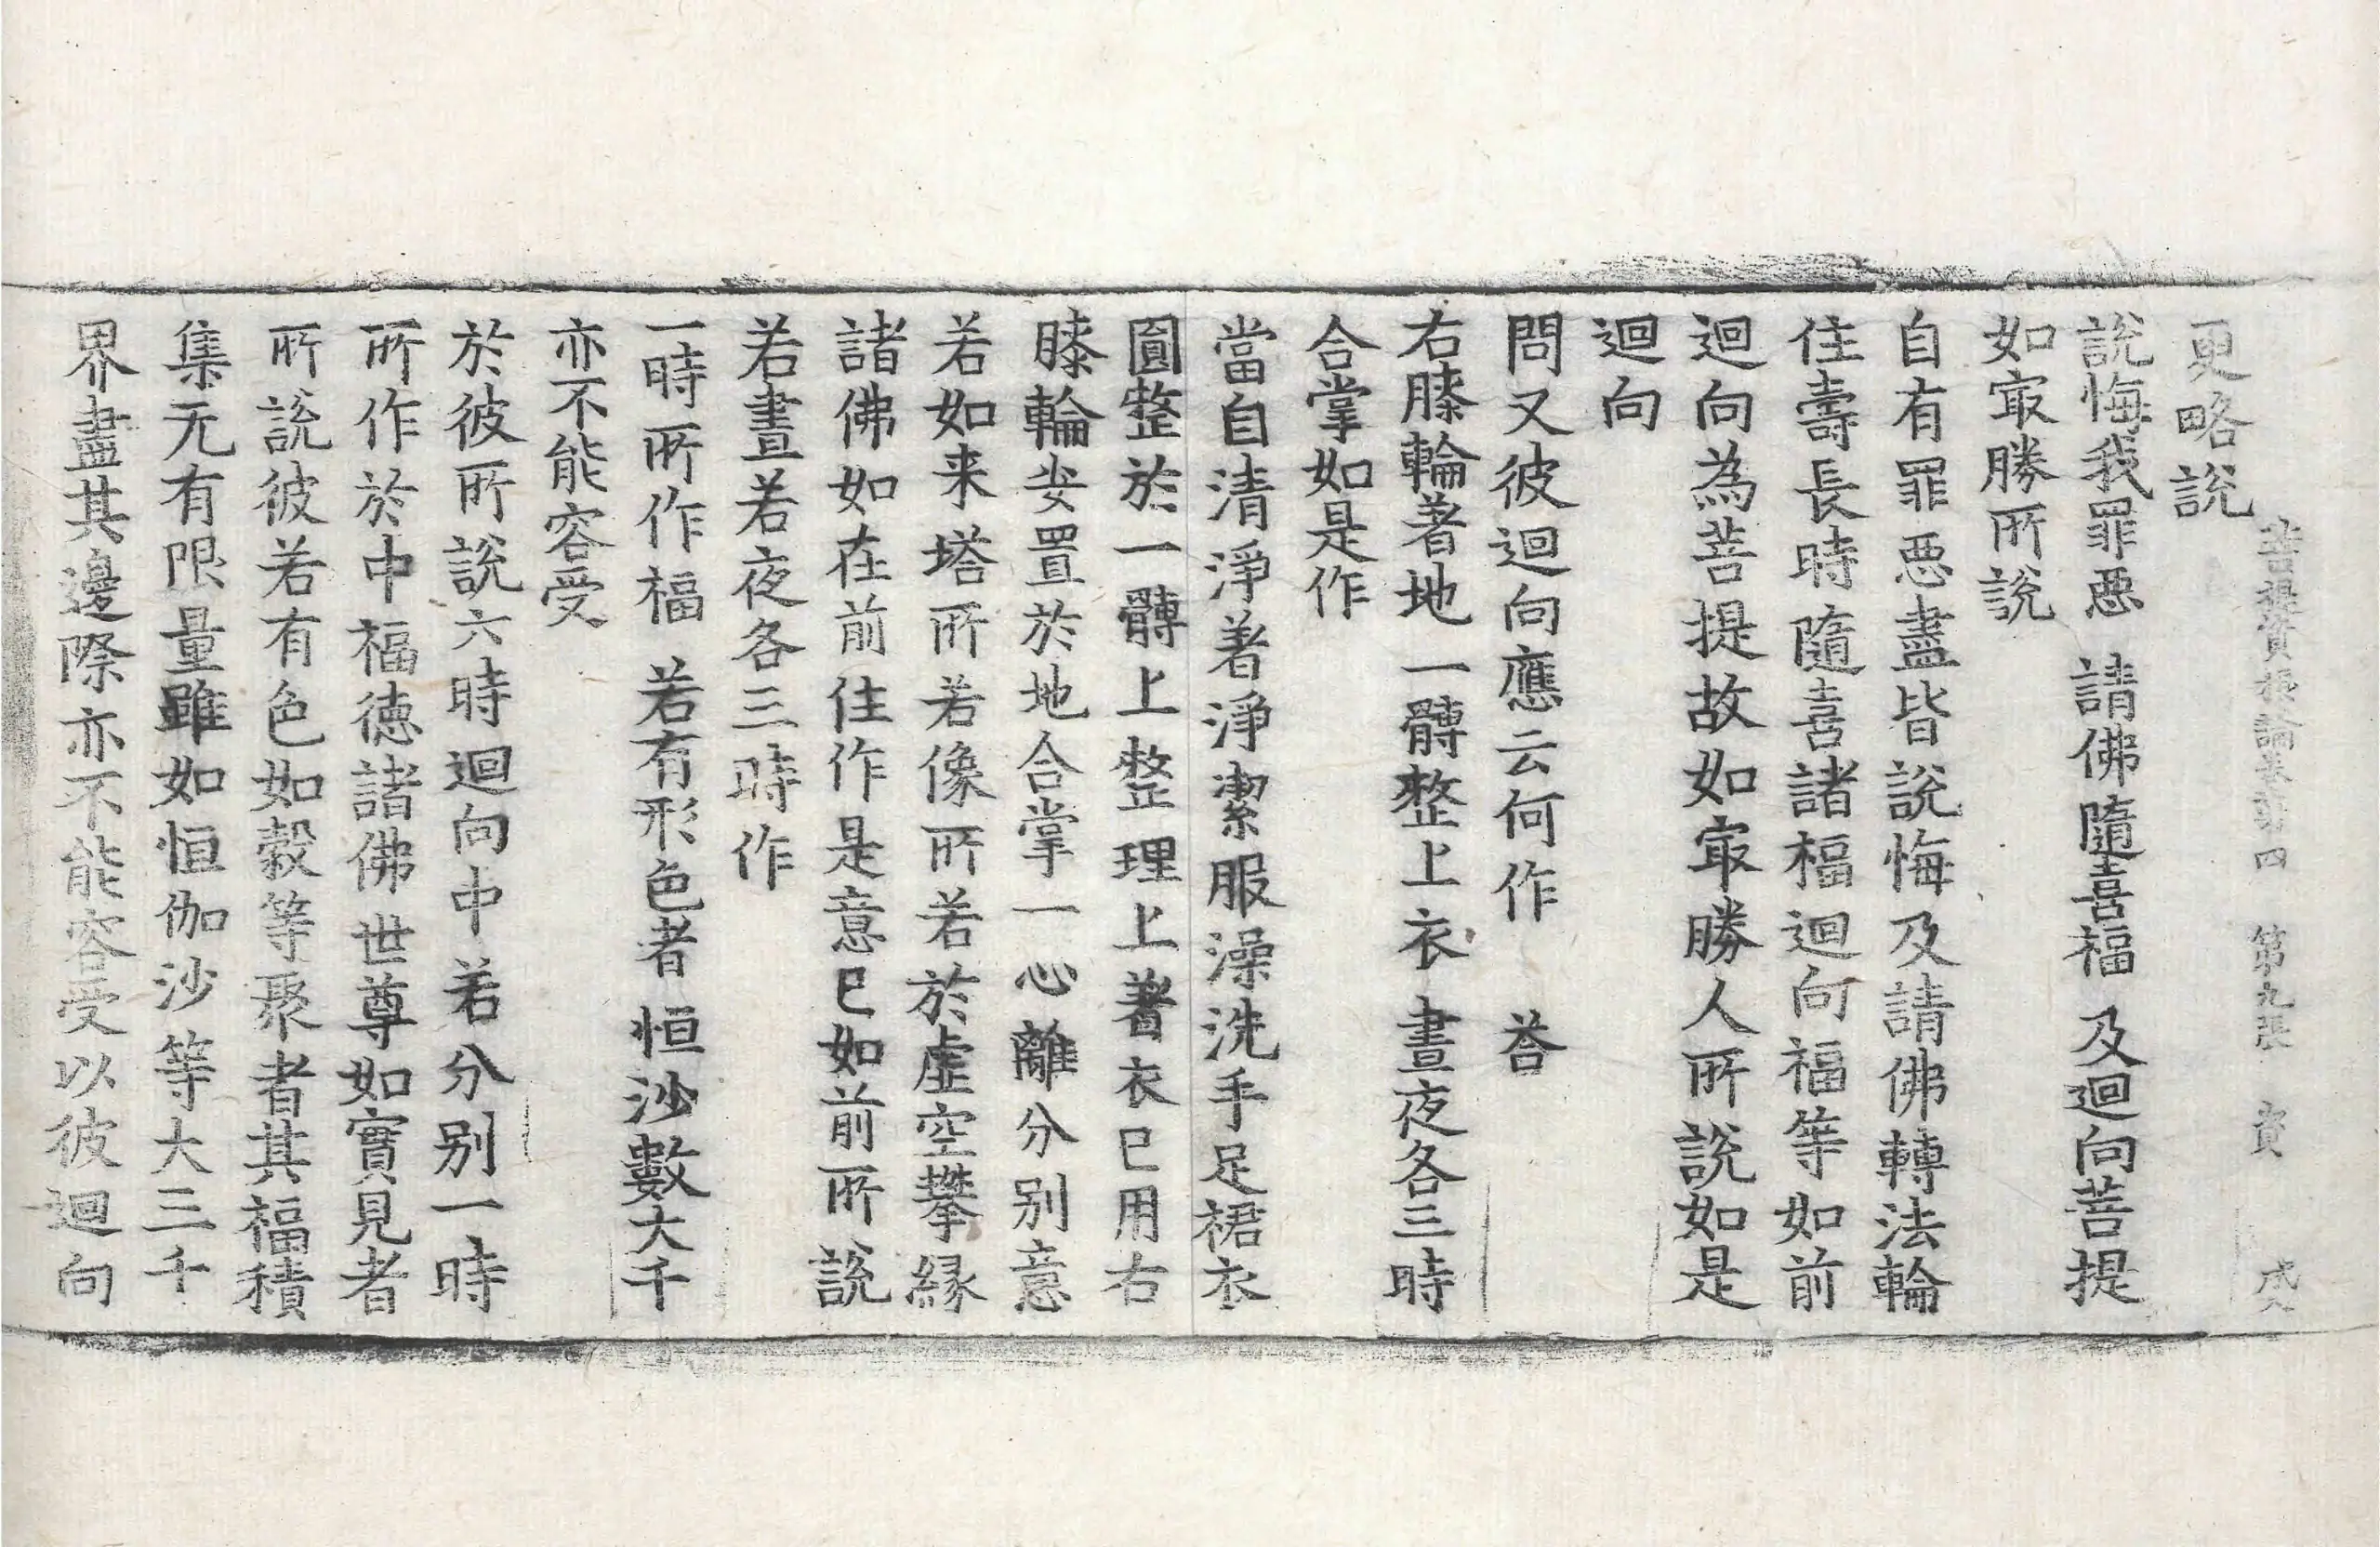 菩提資糧論卷第四 第九張 資
更略說
說悔我罪惡 請佛隨喜福 及迴向菩提
如㝡勝所說
自有罪惡盡皆說悔及請佛轉法輪
住壽長時隨喜諸福迴向福等如前
迴向為菩提故如㝡勝人所說如是
迴向
問又彼迴向應云何作 荅
右膝輪著地 一髆整上衣 晝夜各三時
合掌如是作
當自清淨著淨潔服澡洗手足裙衣
圓整於一髆上整理上著衣已用右
膝輪安置於地合掌一心離分別意
若如来塔所若像所若於虛空攀緣
諸佛如在前住作是意已如前所說
若晝若夜各三時作
一時所作福 若有形色者 恒沙數大千
亦不能容受
於彼所說六時迴向中若分別一時
所作於中福德諸佛世尊如實見者
所說彼若有色如穀等聚者其福積
集无有限量雖如恒伽沙等大三千
界盡其邊際亦不能容受以彼迴向